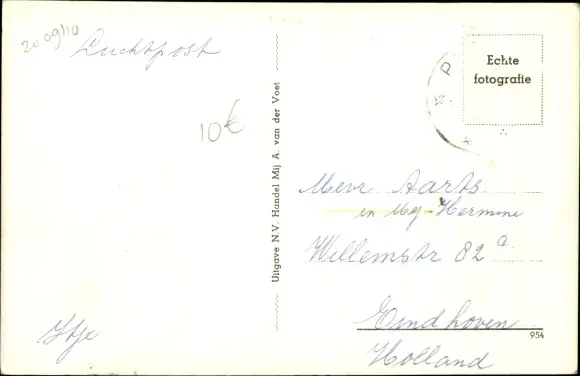 20 09/10
Luchtpost
10€
Uitgave N.V. Handel Mij A. van der Voet
P
Echte
fotografie
Mevr Aarts
en Mej-Hermine
Willemstr 82 a
Eindhoven
954
Holland